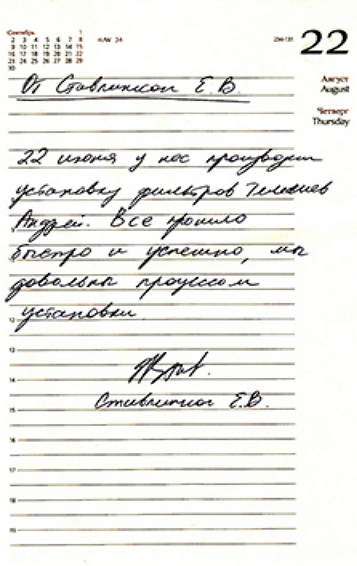 Сентябрь
1
2 3 4 5 6 7 8
9 10 11 12 13 14 15
16 17 18 19 20 21 22
23 24 25 26 27 28 29
30
234-131
22
Август
August
Четверг
Thursday
От Ставлинской Е.В.
22 июня у нас производил
установку фильтров
Андрей. Все прошло
быстро и успешно, мы
довольны процессом
установки.
12
13
14
15
Е.В.
16
17
18
19